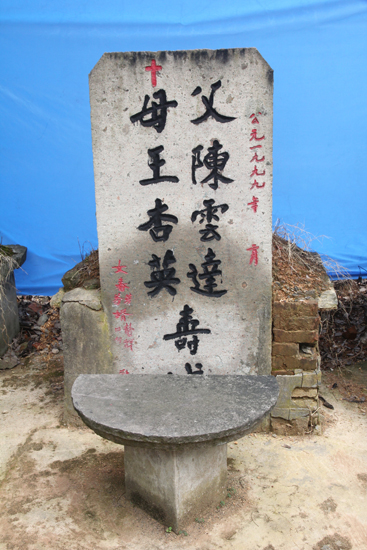 公元一九九九年 月
父陳雲達
母王杏英
壽